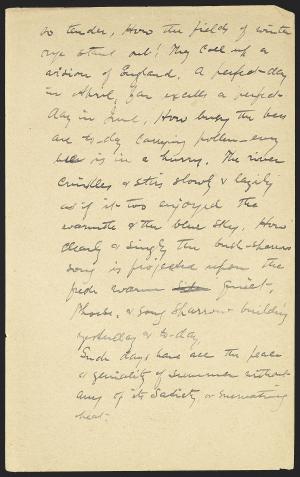 so tender. How the fields of winter
rye stand out! They call up a
vision of England. A perfect day
in April far excells a perfect
day in June. How busy the bees
are to-day carrying pollen - every
bee is in a hurry. The river
crinkles & stirs slowly & lazily
as if it too enjoyed the
warmth & the blue sky. How
clearly & singly the bush-sparrow's
song is projected upon the
fresh warm quiet.
Phoebe, & song sparrow building
yesterday & to-day.
Such days have all the peace
& geniality of summer without
any of its satiety, or enervating
heat.